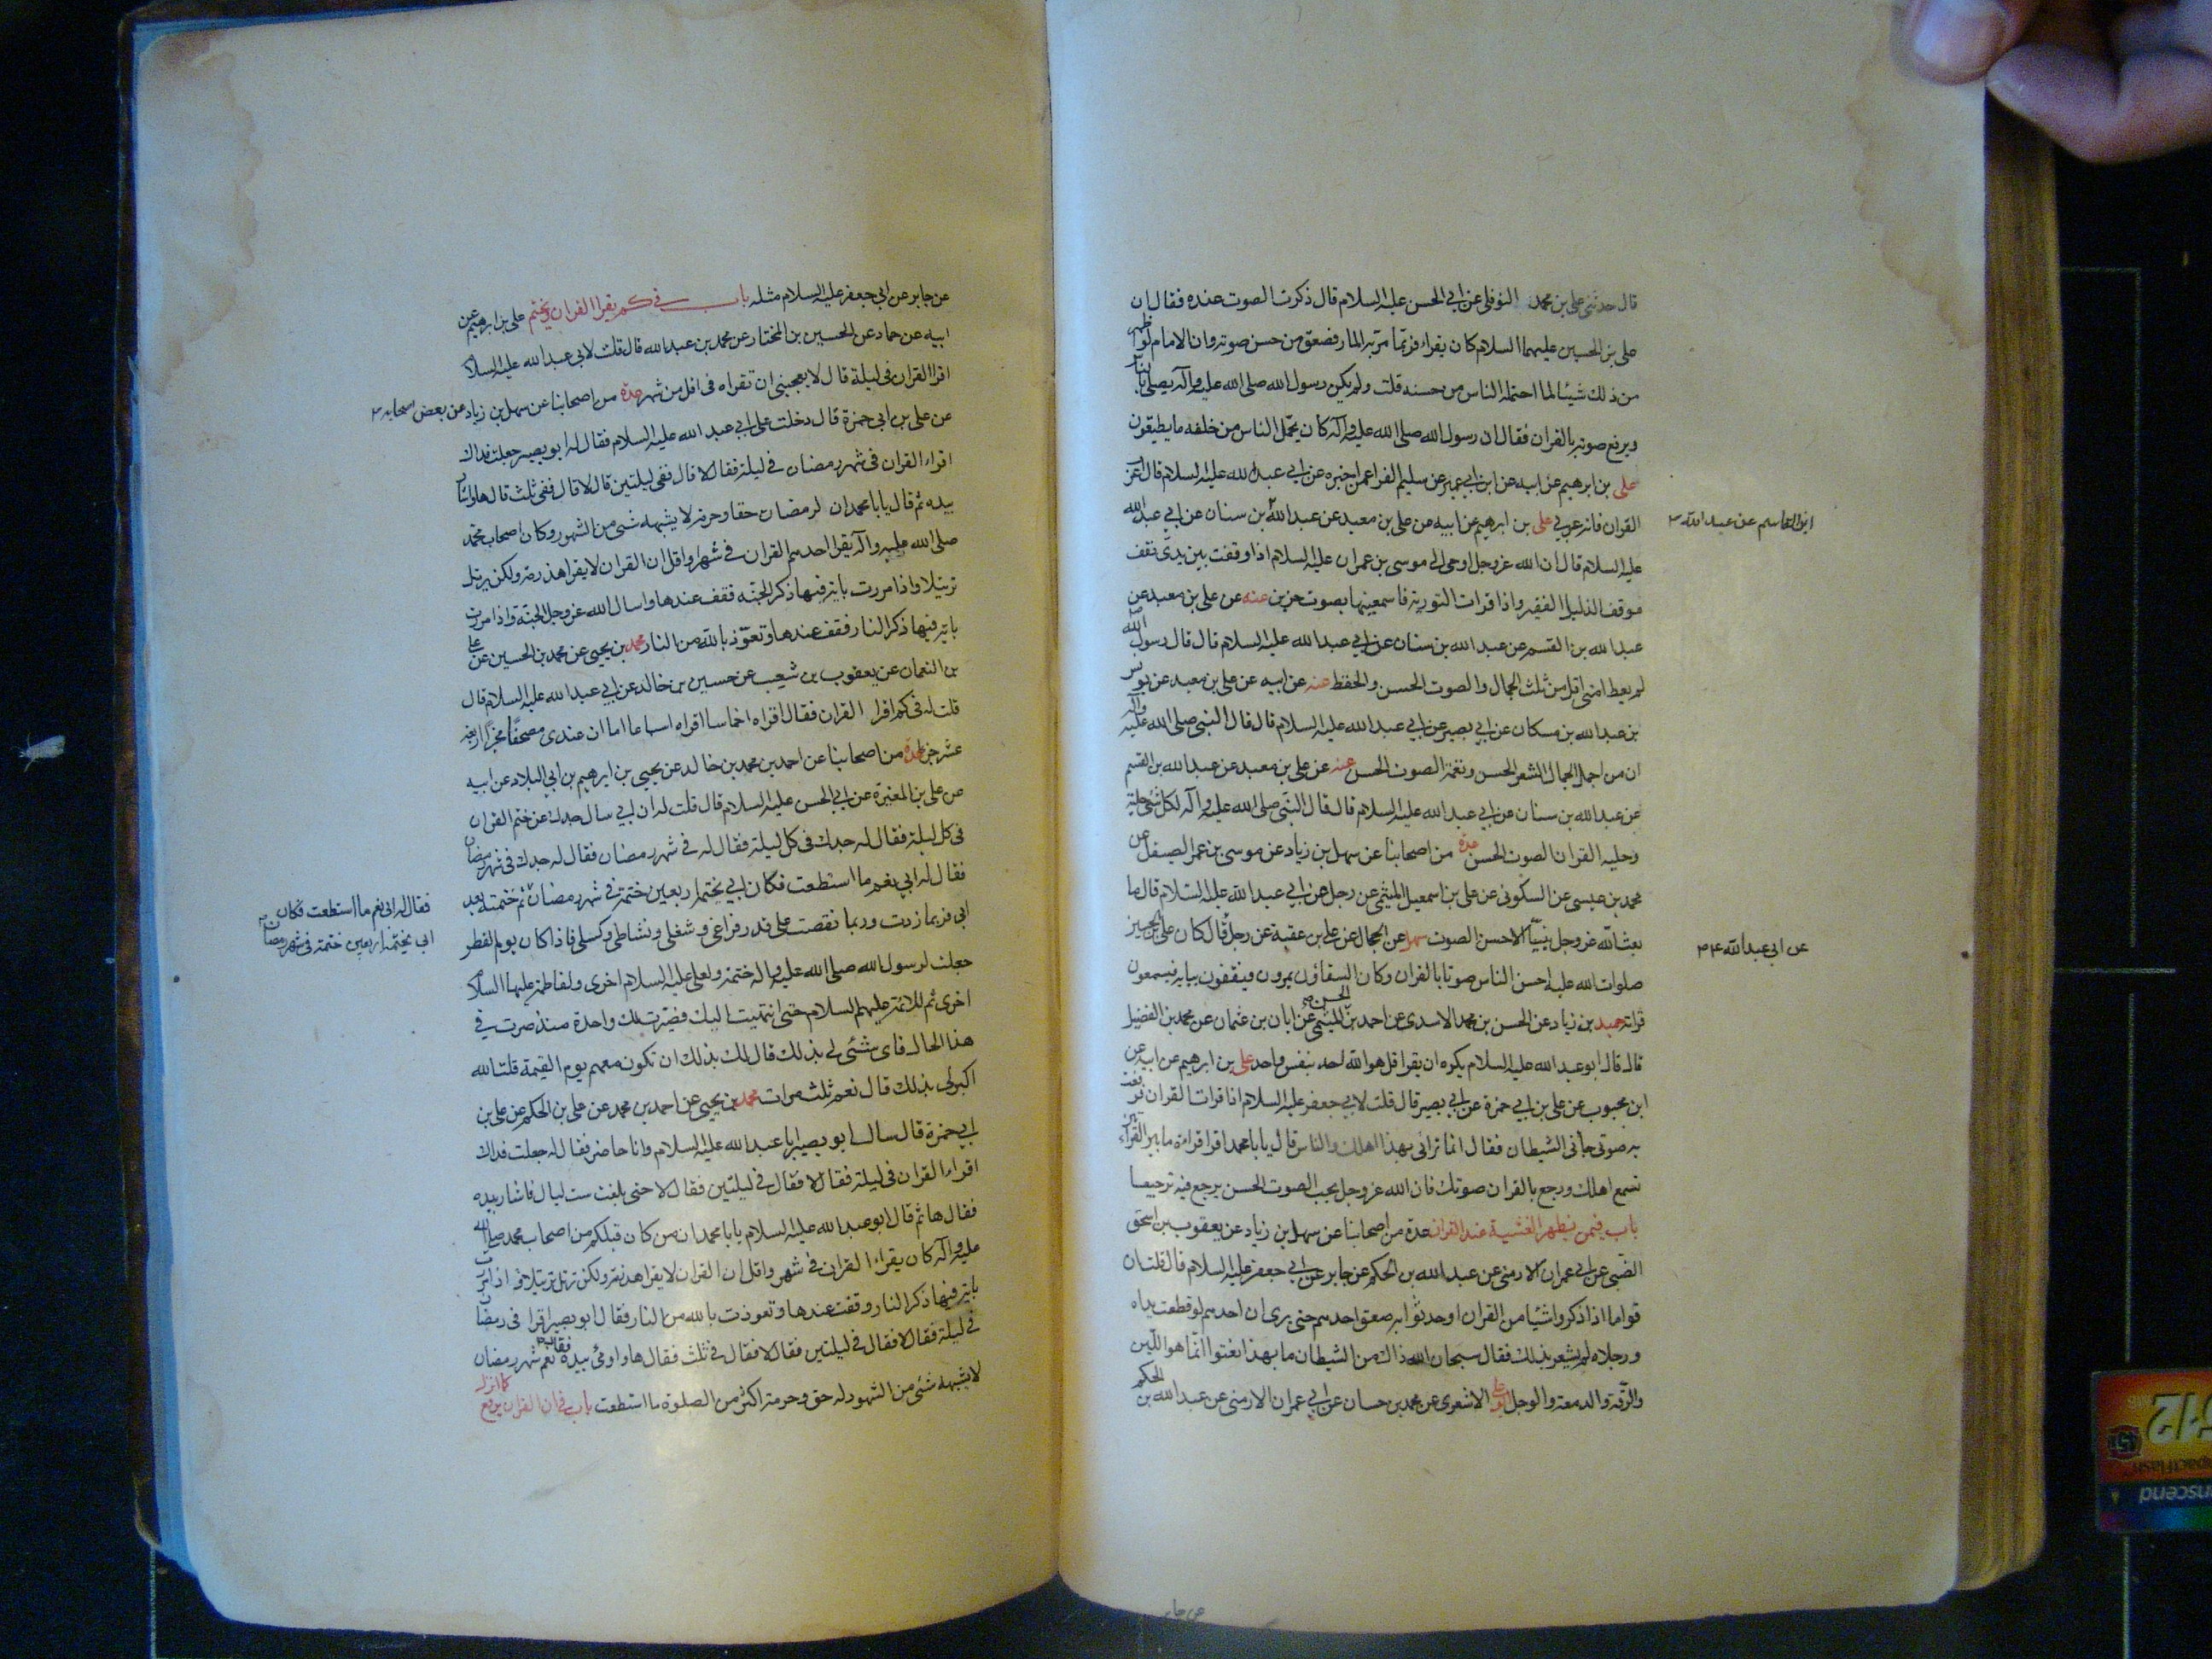 قال حدثنى على بن محمد النوفلى عن ابي الحسن عليه السلام قال ذكرت الصوت عنده فقال ان
على بن الحسين عليهما السلام كان يقراء فربما مر به المار فصعق من حسن صوته وان الامام لو اظهر
من ذلك شيئا لما احتمله الناس من حسنه قلت ولم يكن رسول الله صلى الله عليه وآله يصلى بالناس
ويرفع صوته بالقران فقال ان رسول الله صلى الله عليه وآله كان يحمل الناس من خلفه ما يطيقون
على بن ابرهيم عن ابيه عن ابن ابي عمير عن سليم الفرا عمن اخبره عن ابي عبد الله عليه السلام قال اعرب
القران فانه عربي على بن ابرهيم عن ابيه عن على بن معبد عن عبد الله بن سنان عن ابي عبد الله
ابوالقاسم عن عبد الله
عليه السلام قال ان الله عز وجل اوحى الى موسى بن عمران عليه السلام اذا وقفت بين يدي فقف
موقف الذليل الفقير واذا قرات التورية فاسمعنيها بصوت حزين عنه عن على بن معبد عن
عبد الله بن القسم عن عبد الله بن سنان عن ابي عبد الله عليه السلام قال قال رسول الله
لم يعط امتى اقل من ثلث الجمال والصوت الحسن والحفظ عنه عن ابيه عن على بن معبد عن يونس
بن عبد الله بن مسكان عن ابي بصير عن ابي عبد الله عليه السلام قال قال النبي صلى الله عليه وآله
ان من اجمل الجمال الشعر الحسن ونغمة الصوت الحسن عنه عن على بن معبد عن عبد الله بن القسم
عن عبد الله بن سنان عن ابي عبد الله عليه السلام قال قال النبي صلى الله عليه وآله لكل شئ حلية
وحلية القران الصوت الحسن عدة من اصحابنا عن سهل بن زياد عن موسى بن عمر الصيقل عن
محمد بن عيسى عن السكونى عن على بن اسمعيل الميثمى عن رجل عن ابي عبد الله عليه السلام قال ما
بعث الله عز وجل نبيا الا حسن الصوت سهل عن الحجال عن على بن عقبة عن رجل قال كان على بن الحسين
عن ابى عبد الله ع
صلوات الله عليه احسن الناس صوتا بالقران وكان السقاؤن يمرون فيقفون ببابه فيسمعون
قراته حميد بن زياد عن الحسن بن محمد الاسدى عن احمد بن الحسن الميثمى عن ابان بن عثمان عن محمد بن الفضيل
قال قال ابو عبد الله عليه السلام يكره ان يقرا قل هو الله احد بنفس واحد على بن ابرهيم عن ابيه عن
ابن محبوب عن على بن ابي حمزة عن ابي بصير قال قلت لابي جعفر عليه السلام اذا قرات القران فرفعت
به صوتى جأنى الشيطان فقال انما ترائى بهذا اهلك والناس قال يا با محمد اقرا قراءة ما بين القراتين
تسمع اهلك ورجع بالقران صوتك فان الله عز وجل يحب الصوت الحسن يرجع فيه ترجيعا
باب فيمن يظهر الغشية عند القران عدة من اصحابنا عن سهل بن زياد عن يعقوب بن اسحق
الضبى عن ابي عمران الارمنى عن عبد الله بن الحكم عن جابر عن ابي جعفر عليه السلام قال قلت ان
قواما اذا ذكروا شيئا من القران او حدثوا به صعق احدهم حتى يرى ان احدهم لو قطعت يداه
ورجلاه لم يشعر بذلك فقال سبحان الله ذاك من الشيطان ما بهذا نعتوا انما هو اللين
والرقة والدمعة والوجل الاشعرى عن محمد بن حسان عن ابي عمران الارمنى عن عبد الله بن الحكم
عن جابر
عن جابر عن ابي جعفر عليه السلام مثله باب في كم يقرا القران ويختم على بن ابرهيم عن
ابيه عن حماد عن الحسين بن المختار عن محمد بن عبد الله قال قلت لابي عبد الله عليه السلام
اقرا القران فى ليلة قال لا يعجبنى ان تقراه فى اقل من شهر عدة من اصحابنا عن سهل بن زياد عن بعض اصحابه
عن على بن ابي حمزة قال دخلت على ابي عبد الله عليه السلام فقال له ابو بصير جعلت فداك
اقراء القران فى شهر رمضان في ليلة فقال لا قال ففى ليلتين قال لا قال ففى ثلث قال ها واشار
بيده ثم قال يا با محمد ان لرمضان حقا وحرمة لا يشبهه شىء من الشهور وكان اصحاب محمد
صلى الله عليه وآله يقرا احدهم القران في شهر او اقل ان القران لا يقرا هذرمة ولكن يرتل
ترتيلا واذا مررت باية فيها ذكر الجنة فقف عندها واسال الله عز وجل الجنة واذا مررت
باية فيها ذكر النار فقف عندها وتعوذ بالله من النار محمد بن يحيى عن محمد بن الحسين عن على
بن النعمان عن يعقوب بن شعيب عن حسين بن خالد عن ابي عبد الله عليه السلام قال
قلت له فى كم اقرا القران فقال اقراه اخماسا اقراه اسباعا اما ان عندى مصحفا مجزا اربعة
عشر جزا عدة من اصحابنا عن احمد بن محمد بن خالد عن يحيى بن ابرهيم بن ابي البلاد عن ابيه
عن على بن المغيرة عن ابي الحسن عليه السلام قال قلت له ان ابي سال جدك عن ختم القران
فى كل ليلة فقال له جدك فى كل ليلة فقال له في شهر رمضان فقال له جدك فى شهر رمضان
فقال له ابي نعم ما استطعت فكان ابي يختمه اربعين ختمة في شهر رمضان ثم ختمته بعد
فقال له ابى نعم ما استطعت فكان
ابى يختمه اربعين ختمة فى شهر رمضان
ابى فربما زدت وربما نقصت على قدر فراغى وشغلى ونشاطى وكسلى فاذا كان يوم الفطر
جعلت لرسول الله صلى الله عليه واله ختمة ولعلى عليه السلام اخرى ولفاطمة عليها السلام
اخرى ثم للائمة عليهم السلام حتى انتهيت اليك فصيرت لك واحدة منذ صرت في
هذا الحال فاى شئى لي بذلك قال لك بذلك ان تكون معهم يوم القيمة قلت الله
اكبر لى بذلك قال نعم ثلث مرات محمد بن يحيى عن احمد بن محمد عن على بن الحكم عن على بن
ابي حمزة قال سال ابو بصير ابا عبد الله عليه السلام وانا حاضر فقال له جعلت فداك
اقراء القران فى ليلة فقال لا فقال في ليلتين فقال لا حتى بلغت ست ليال فاشار بيده
فقال ها ثم قال ابو عبد الله عليه السلام يا با محمد ان من كان قبلكم من اصحاب محمد صلى الله
عليه وآله كان يقراء القران في شهر واقل ان القران لا يقرا هذرمة ولكن ترتل ترتيلا اذا مررت
باية فيها ذكر النار وقفت عندها وتعوذت بالله من النار فقال ابو بصير اقرا فى رمضان
في ليلة فقال لا فقال في ليلتين فقال لا فقال في ثلث فقال ها واومئ بيده فقال نعم شهر رمضان
لا يشبهه شئى من الشهور له حق وحرمة اكثر من الصلوة ما استطعت باب في ان القران يرفع كما انزل